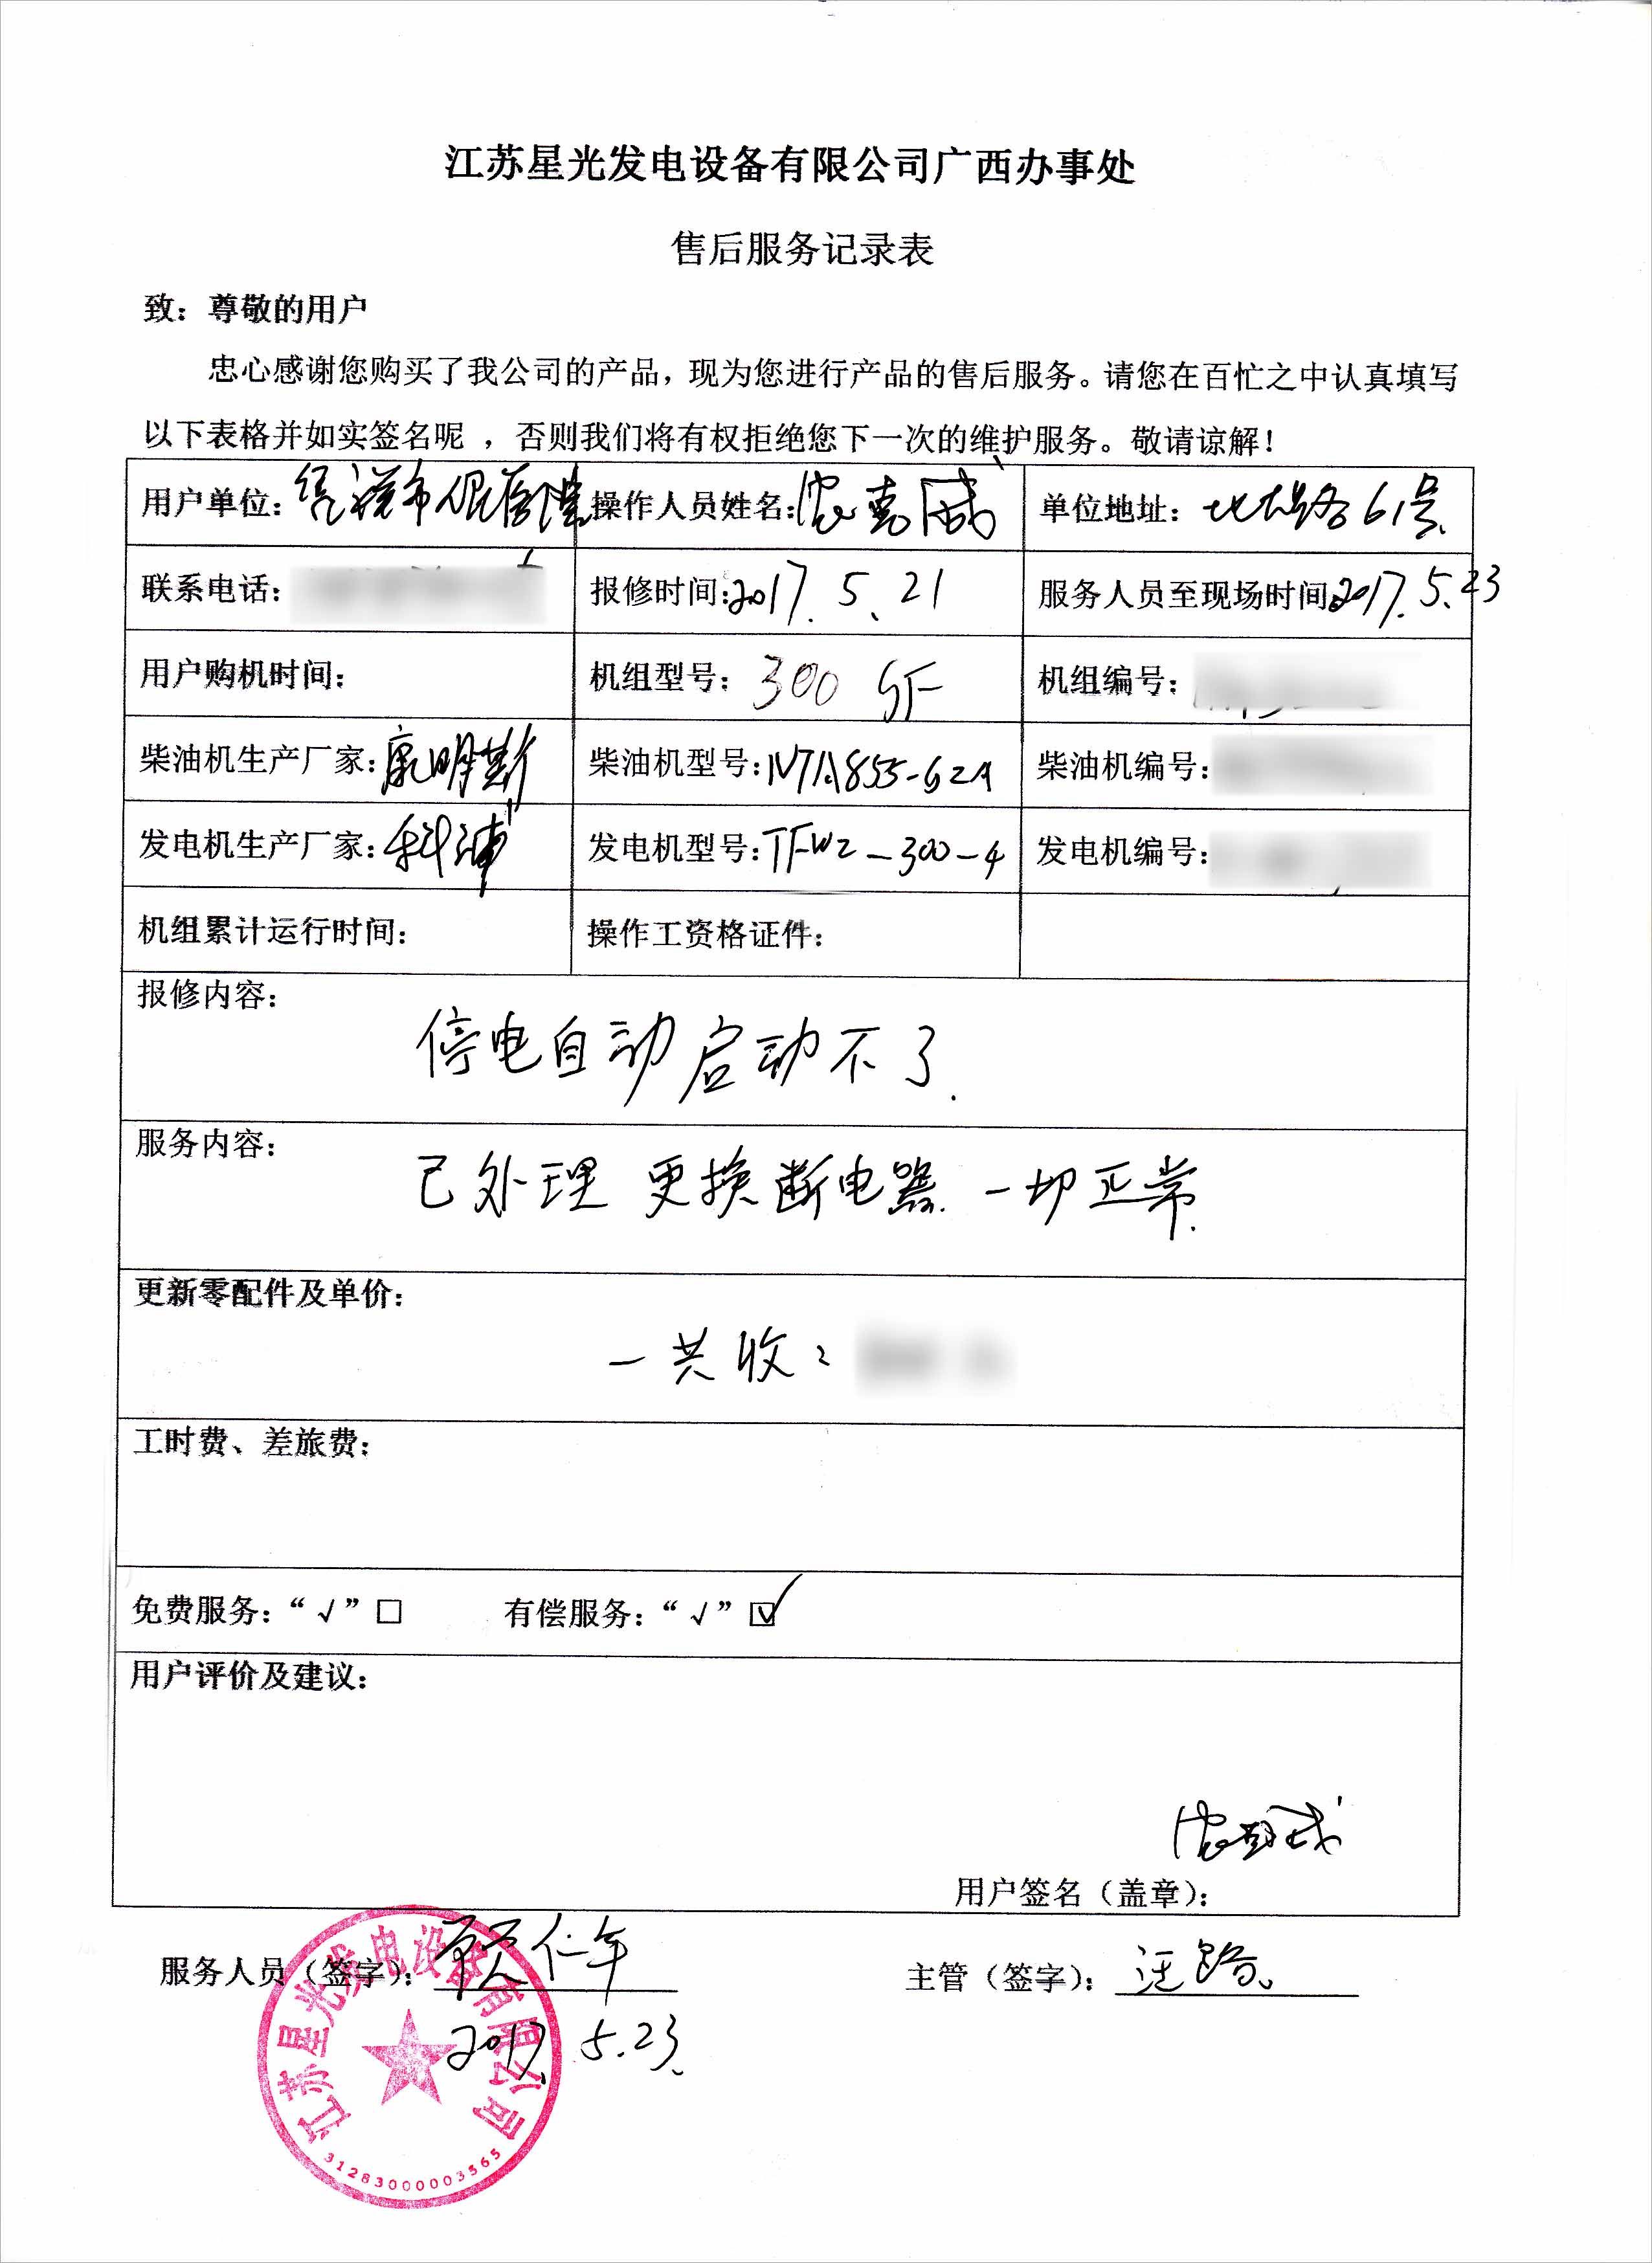 江苏星光发电设备有限公司广西办事处
售后服务记录表
致：尊敬的用户
忠心感谢您购买了我公司的产品，现为您进行产品的售后服务。请您在百忙之中认真填写
以下表格并如实签名呢 ，否则我们将有权拒绝您下一次的维护服务。敬请谅解！
用户单位： 操作人员姓名： 单位地址： 61号
联系电话： 报修时间：2017.5.21 服务人员至现场时间：2017.5.23
用户购机时间： 机组型号：300 GF 机组编号：
柴油机生产厂家：康明斯 柴油机型号：NTA855-G2A 柴油机编号：
发电机生产厂家：科浦 发电机型号：TFW2-300-4 发电机编号：
机组累计运行时间： 操作工资格证件：
报修内容：
停电自动启动不了.
服务内容：
已处理 更换断电器. 一切正常.
更新零配件及单价：
一共收：
工时费、差旅费：
免费服务：“√”□ 有偿服务：“√”☑
用户评价及建议：
用户签名（盖章）：
服务人员（签字）： 仁年 主管（签字）：汪
2017.5.23.
江苏星光发电设备有限公司
31283000003565